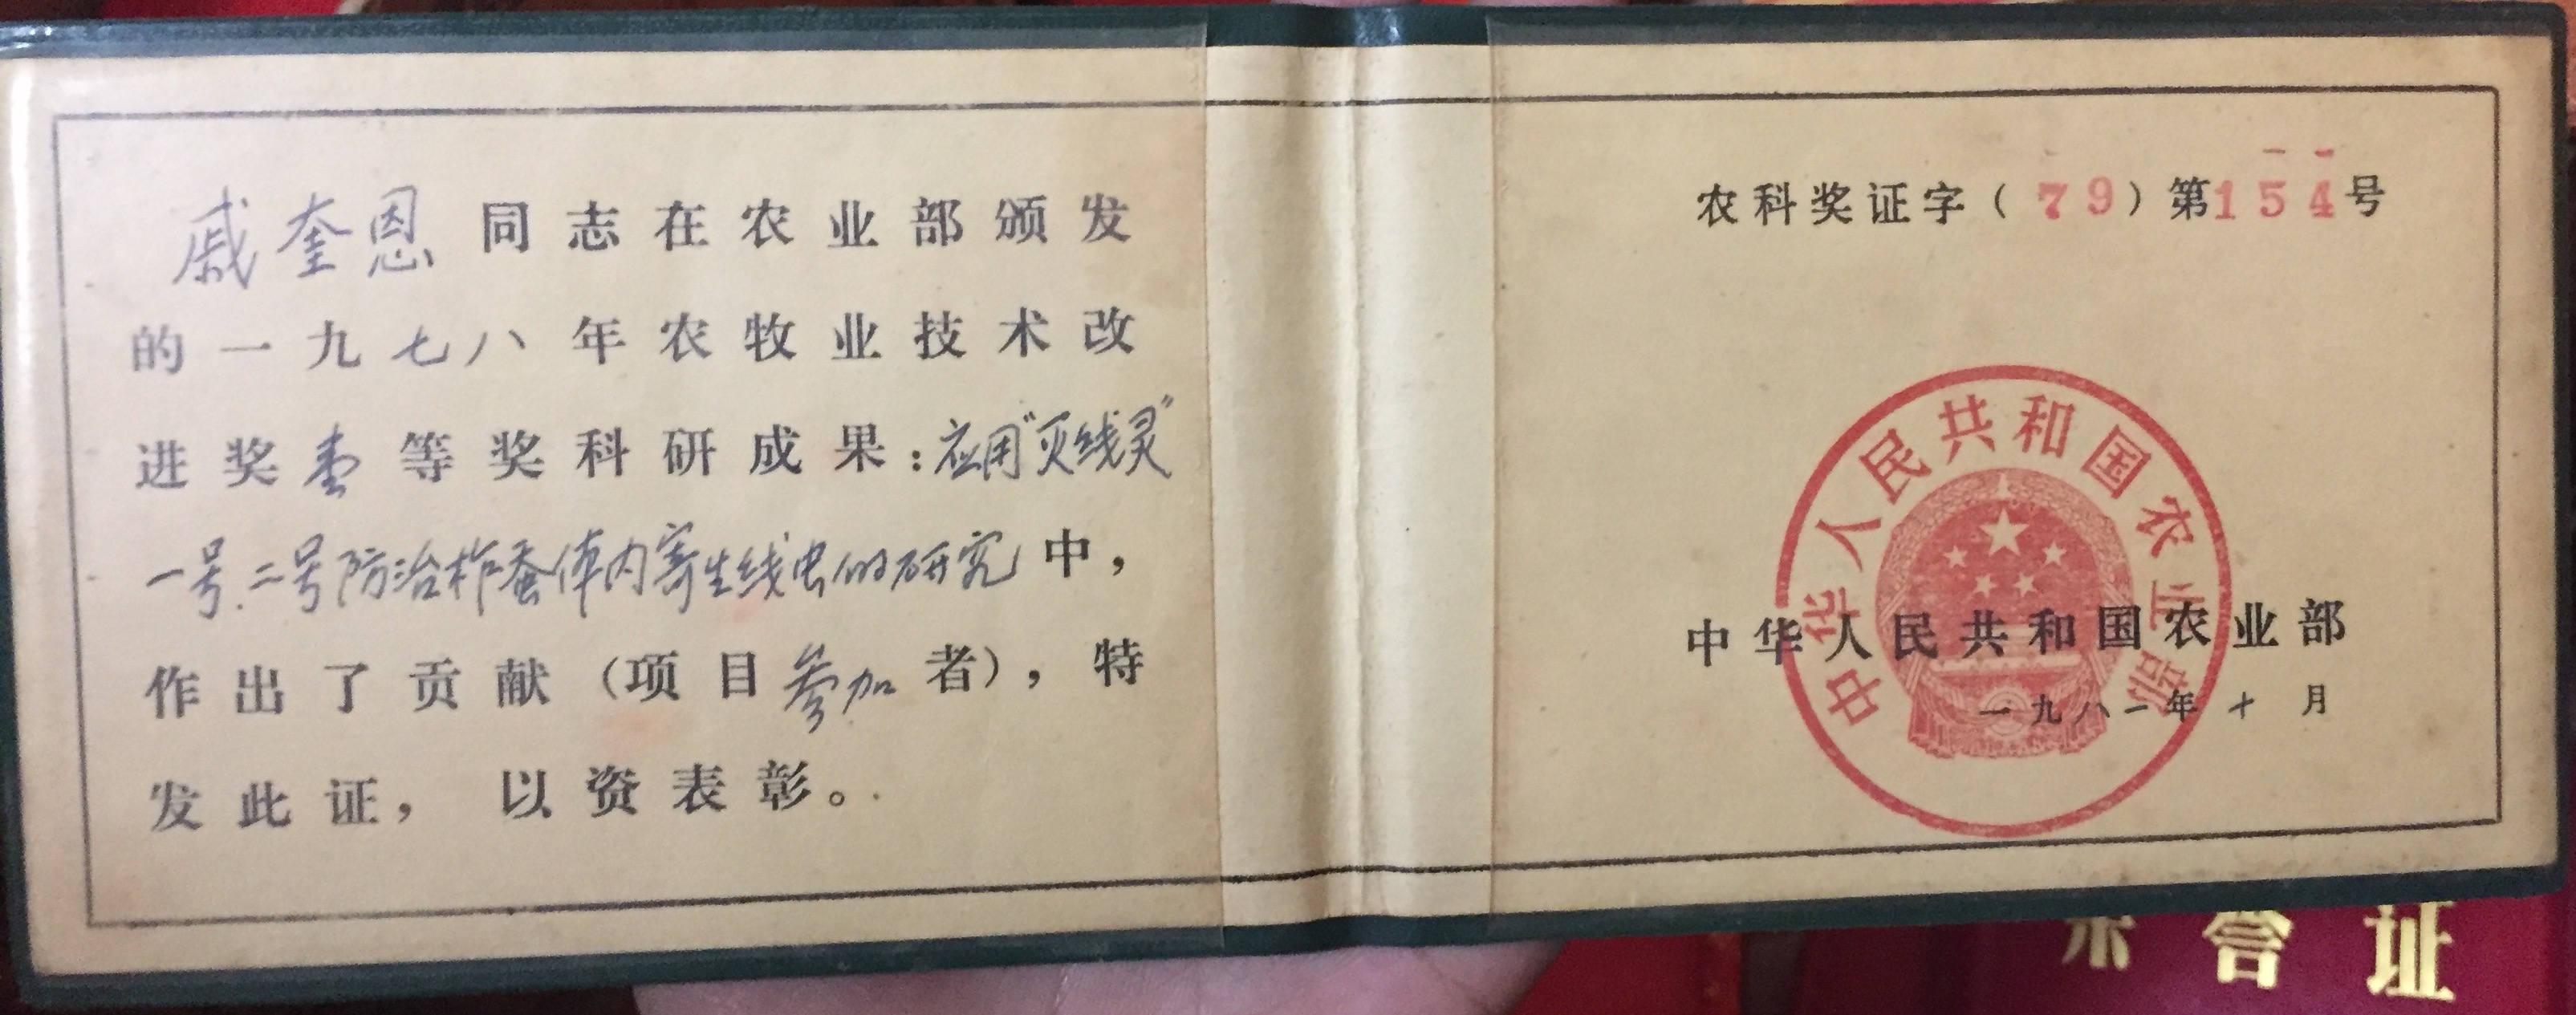 戚奎恩同志在农业部颁发
的一九七八年农牧业技术改
进奖壹等奖科研成果：应用“灭线灵”
一号.二号防治柞蚕体内寄生线虫的研究中，
作出了贡献（项目参加者），特
发此证，以资表彰。
农科奖证字（79）第154号
中华人民共和国农业部
中华人民共和国农业部
一九八一年十月
荣誉证